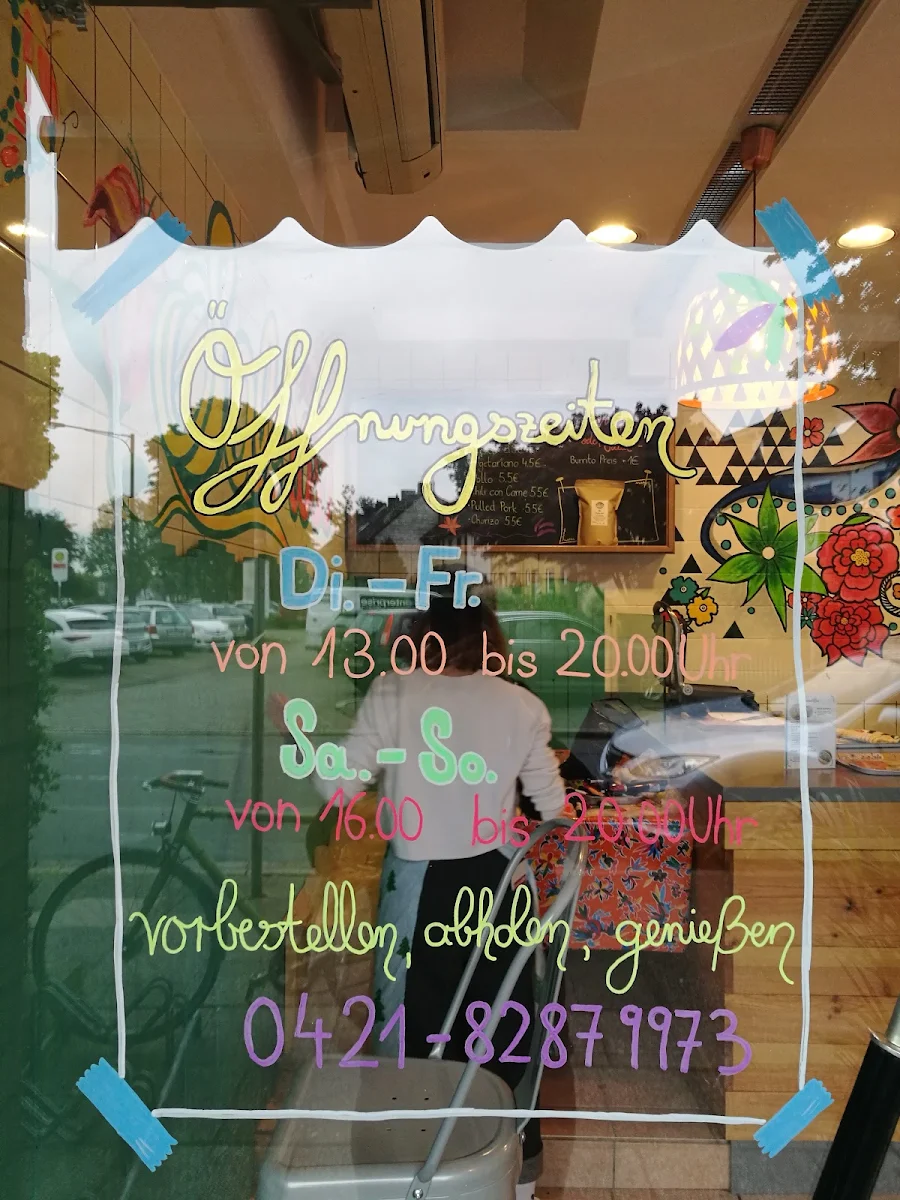 Öffnungszeiten
Di.-Fr.
von 13.00 bis 20.00 Uhr
Sa.-So.
von 16.00 bis 20.00 Uhr
vorbestellen, abholen, genießen
0421-82879973
Burrito Preis +1€
4.5€
5.5€
Chili con Carne 5.5€
Pulled Pork 5.5€
Chorizo 5.5€
enterprise